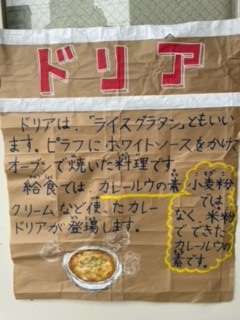 ドリア
ドリアは、"ライスグラタン"ともいい
ます。ピラフにホワイトソースをかけ
オーブンで焼いた料理です。
給食では、カレールウの素
クリームなど使ったカレー
ドリアが登場します。
小麦粉
では
なく、米粉
でできた
カレールウの
素です。